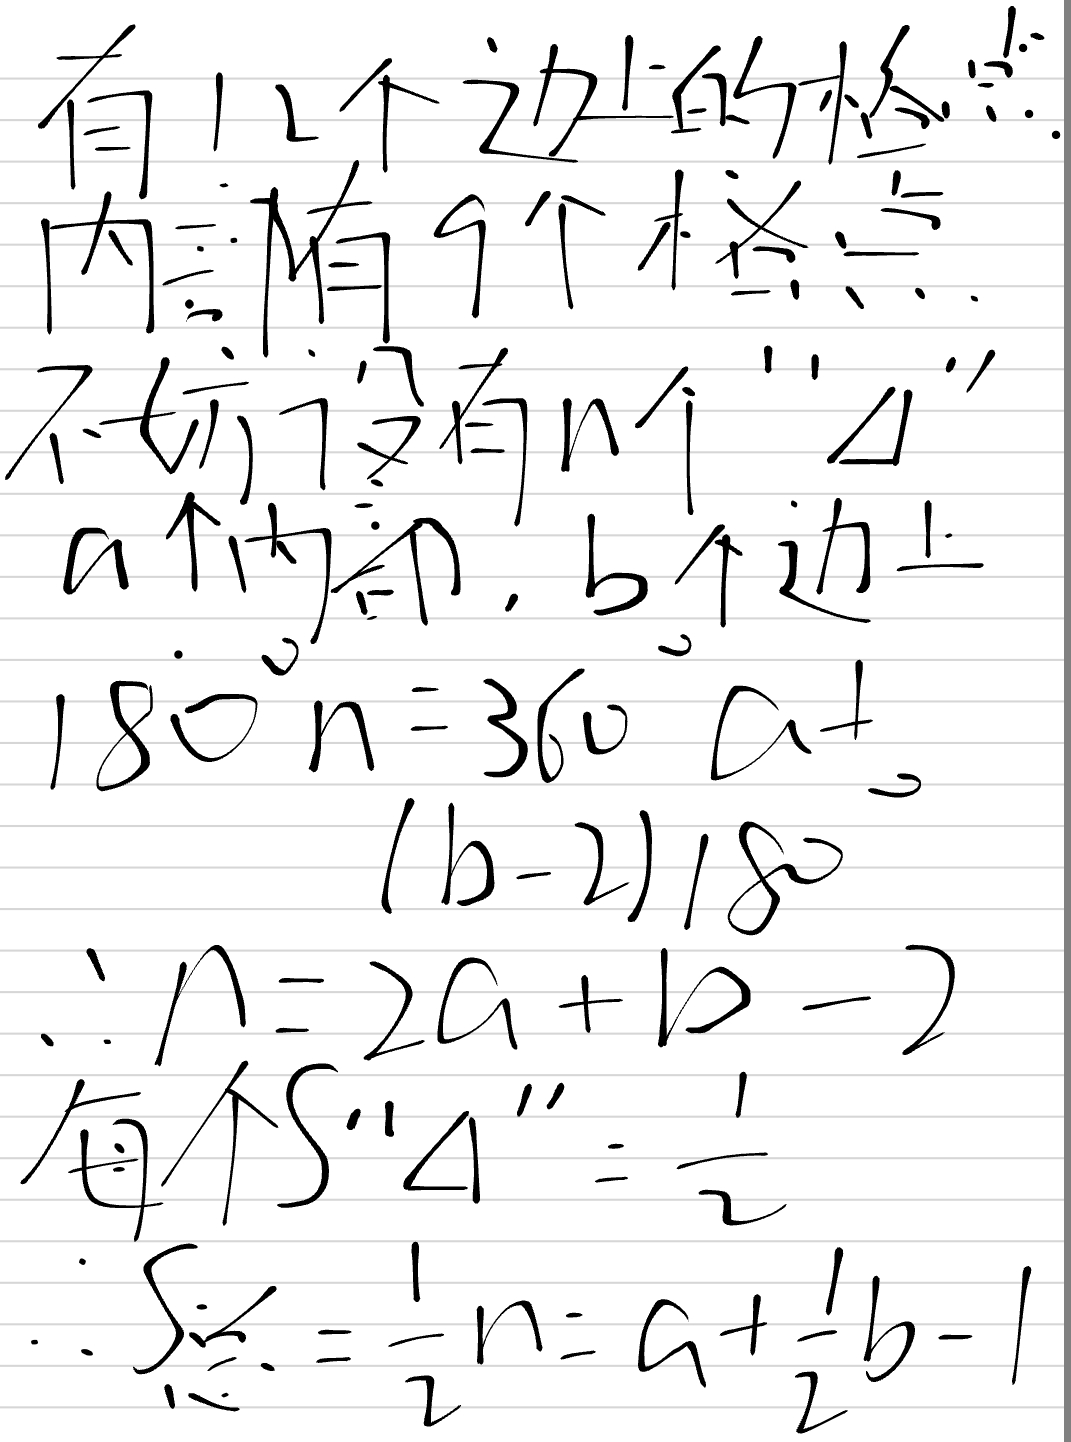 有12个边上的格点
内部有9个格点
不妨设有n个“△”
a个内部,b个边上
180°n=360°a+
(b-2)180°
∴n=2a+b-2
每个S“△”=1/2
∴S总=1/2n=a+1/2b-1